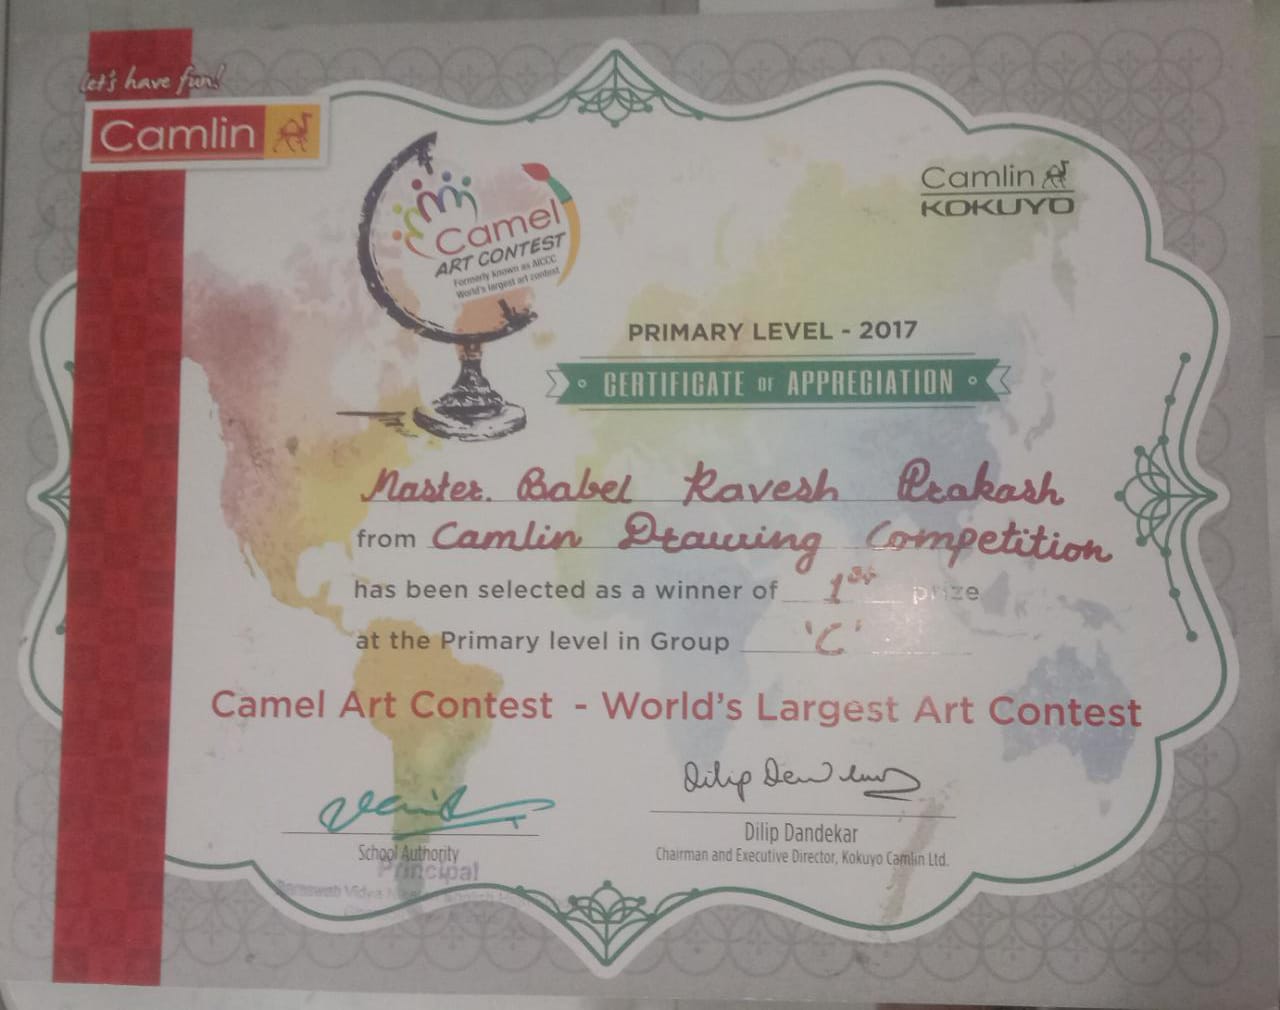 let's have fun!
Camlin
Camlin
KOKUYO
Camel
ART CONTEST
Formerly known as AICCC
World's largest art contest
PRIMARY LEVEL - 2017
CERTIFICATE OF APPRECIATION
Master. Babel Ravesh Prakash
from Camlin Drawing Competition
has been selected as a winner of 1st prize
at the Primary level in Group 'C'
Camel Art Contest - World's Largest Art Contest
Dilip Dandekar
School Authority
Chairman and Executive Director, Kokuyo Camlin Ltd.
Principal